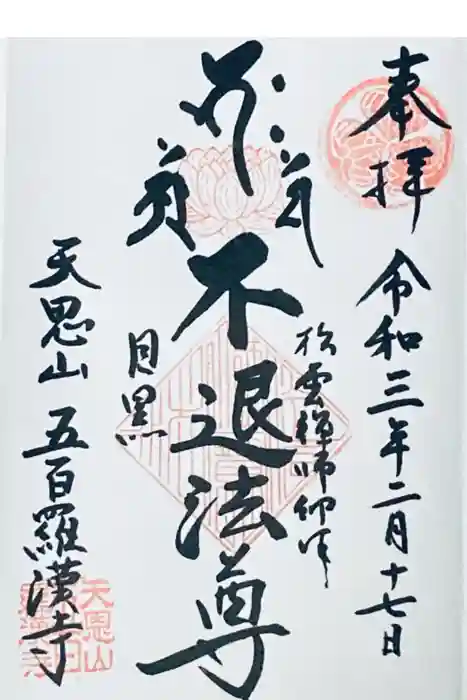 奉拝
令和三年二月十七日
松雲禅師御作
不退法尊
目黒
天恩山 五百羅漢寺
天恩山